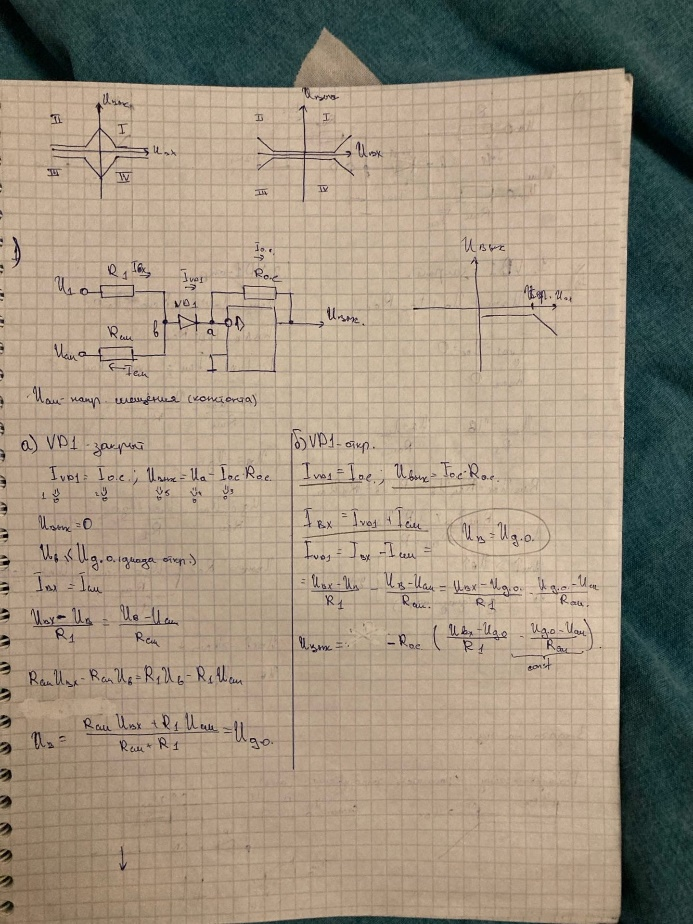 Uвых.
II
I
Uвх
III
IV
Uвых
II
I
Uвх
III
IV
1)
I о.с.
Uвых
R1 Iвх
Ivd1
Rо.с
U1
VD1
Uгр. Uвх
в
a
Uвых.
Rсм
Uсм
Iсм
Uсм - напр. смещения (константа)
а) VD1 - закрытый
Ivd1 = Iо.с.; Uвых = Ua - Iос · Rос
1 0 2 0 5 0 4 0 3 0
Uвых = 0
Uв ≤ Uд.о. (диода откр.)
Iвх = Iсм
Uвх - Uв / R1 = Uв - Uсм / Rсм
RсмUвх - RсмUв = R1Uв - R1Uсм
Uв = RсмUвх + R1Uсм / Rсм + R1 = Uд.о.
↓
б) VD1 - откр.
Ivd1 = Iос; Uвых = Iос · Rос.
Iвх = Ivd1 + Iсм
Uв = Uд.о.
Ivd1 = Iвх - Iсм =
= Uвх - Uв / R1 - Uв - Uсм / Rсм. = Uвх - Uд.о. / R1 - Uд.о - Uсм / Rсм.
Uвых = - Rос ( Uвх - Uд.о / R1 - Uд.о - Uсм / Rсм ).
const